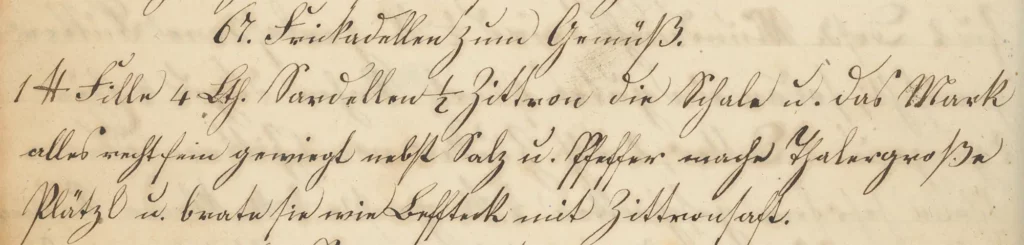 67. Frickadellen zum Gemüß.
1 ℔ Fille 4 Lth. Sardellen ½ Zittron die Schale u. das Mark
alles recht fein gewiegt nebst Salz u. Pfeffer mache Thalergroße
Plätzl u. brate sie wie Beffteck mit Zittronsaft.